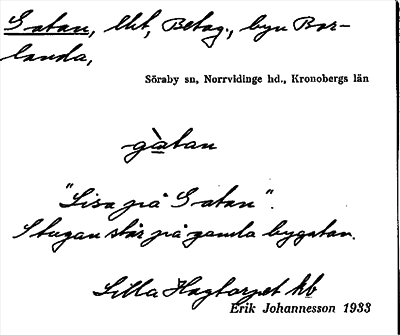 Gatan, lht, Betag., byn Bor-
landa,
Söraby sn, Norrvidinge hd., Kronobergs län
gàtan
"Lisa på Gatan".
Stugan står på gamla bygatan.
Lilla Hagtorpet hb
Erik Johannesson 1933